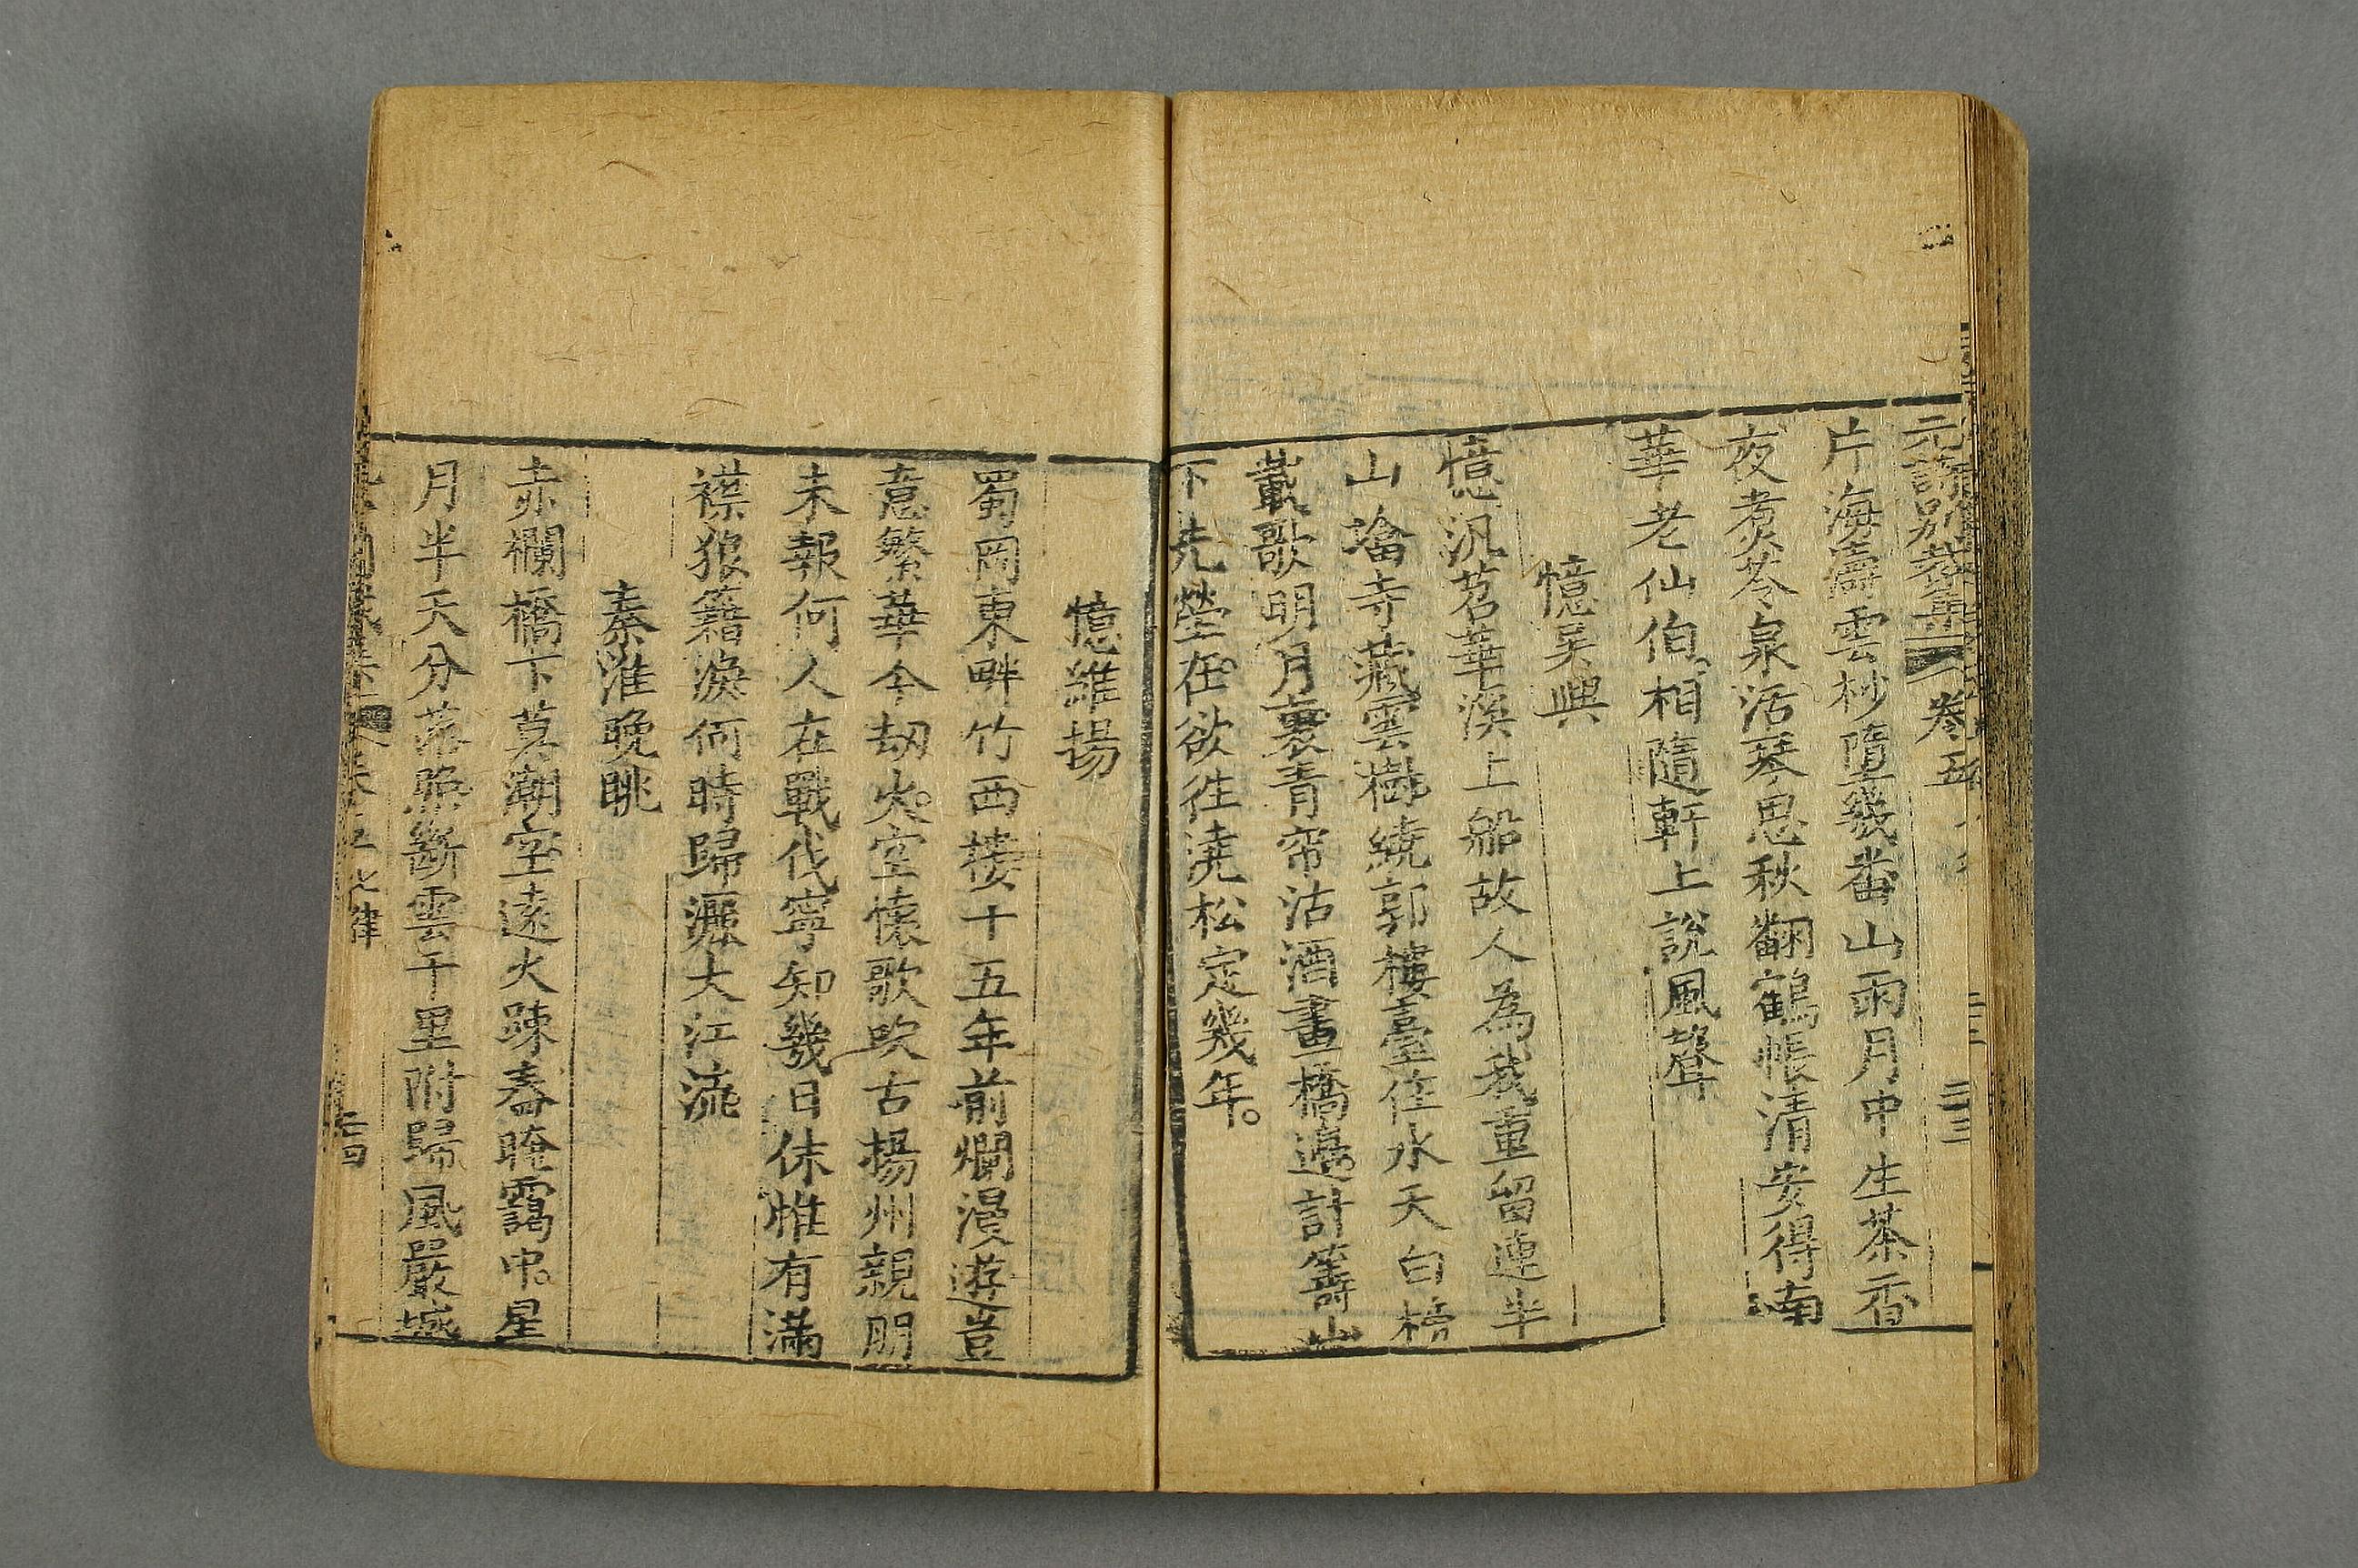 元詩別裁集 卷五 二三
片海濤雲杪墮幾番山雨月中生茶香
夜煮苓泉活琴思秋翻鶴帳清安得南
華老仙伯相隨軒上說風聲
憶吳興
憶汎苕華溪上船故人為我重留連半
山塔寺藏雲樹繞郭樓臺住水天白榜
載歌明月裏青帘沽酒畫橋邊計籌山
下先塋在欲往澆松定幾年
憶維揚
蜀岡東畔竹西樓十五年前爛漫遊豈
意繁華今劫火空懷歌吹古揚州親朋
未報何人在戰伐寧知幾日休惟有滿
襟狼籍淚何時歸灑大江流
秦淮晚眺
赤欄橋下莫潮空遠火疎舂晻靄中星
月半天分落照斷雲千里附歸風嚴城
七律 二四